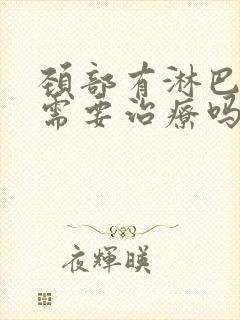 颈部有淋巴
需要治疗吗
夜輝暎